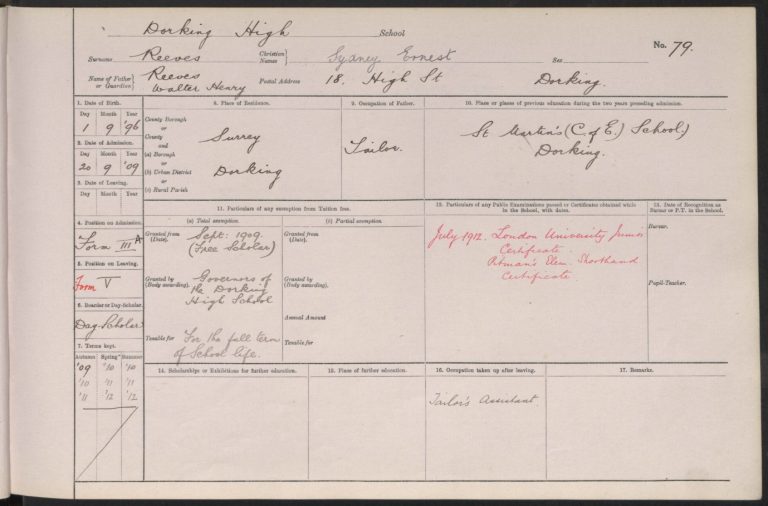 Dorking High School
No. 79.
Surname Reeves Christian Names} Sydney Ernest Sex
Name of Father} or Guardian} Reeves Walter Henry Postal Address 18. High St Dorking.
1. Date of Birth.
Day Month Year
1 9 '96
2. Date of Admission.
Day Month Year
20 9 '09
3. Date of Leaving.
Day Month Year
4. Position on Admission.
Form III A
5. Position on Leaving.
Form V
6. Boarder or Day-Scholar.
Day-Scholar
7. Terms kept.
Autumn Spring Summer
'09 '10 '10
'10 '11 '11
'11 '12 '12
8. Place of Residence.
County Borough
or
County
and
(a) Borough
or
(b) Urban District
or
(c) Rural Parish
Surrey
Dorking
9. Occupation of Father.
Tailor.
10. Place or places of previous education during the two years preceding admission.
St Martin's (C. of E.) School.
Dorking.
11. Particulars of any exemption from Tuition fees.
(a) Total exemption.
Granted from (Date). Sept: 1909.
(Free Scholar)
Granted by (Body awarding). Governors of
the Dorking
High School
Tenable for For the full term
of School life.
(b) Partial exemption.
Granted from (Date).
Granted by (Body awarding).
Annual Amount
Tenable for
12. Particulars of any Public Examinations passed or Certificates obtained while
in the School, with dates.
July 1912. London University Junior
Certificate.
Pitman's Elem. Shorthand
Certificate
13. Date of Recognition as
Bursar or P.T. in the School.
Bursar.
Pupil-Teacher.
14. Scholarships or Exhibitions for further education.
15. Place of further education.
16. Occupation taken up after leaving.
Tailor's Assistant.
17. Remarks.